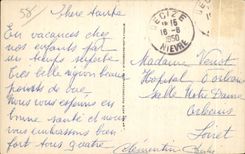 58
Chère tantine
En vacances chez
nos enfants par
un temps superbe
Très belle région beaux
points de vue
Nous vous espérons en
bonne santé et nous
vous embrassons bien
fort tous quatre
Clémentin
DECIZE
16
16-8
1950
NIEVRE
Madame
Hôpital Orléans
Salle Notre Dame
Orléans
Loiret